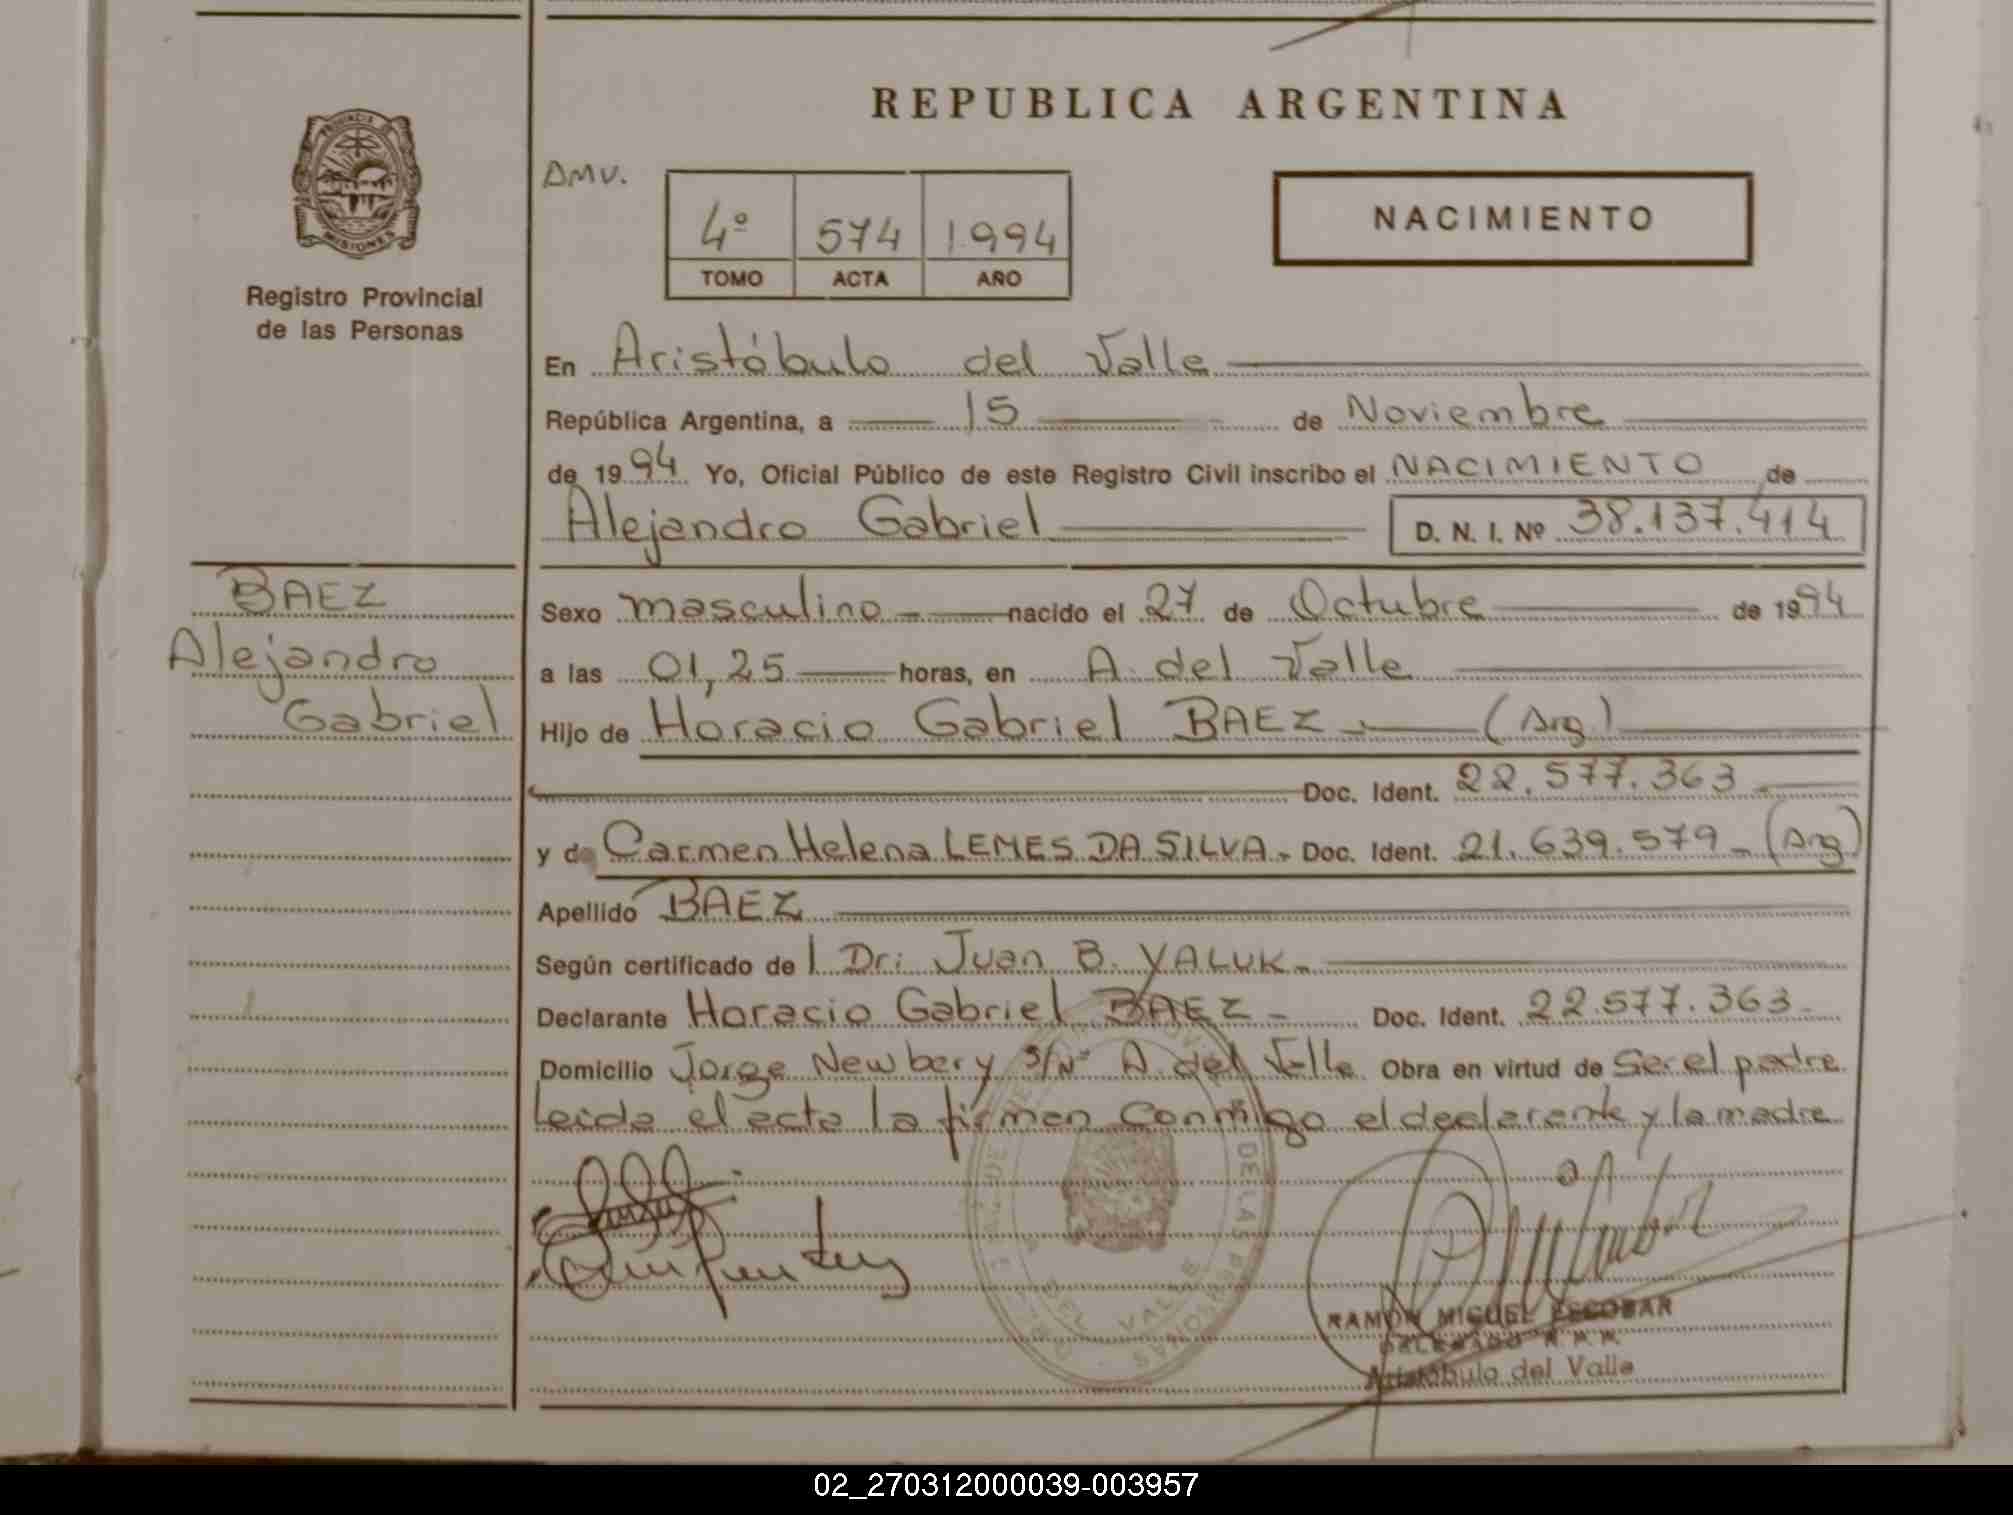 REPUBLICA ARGENTINA
PROVINCIA DE
MISIONES
Registro Provincial
de las Personas
AMV.
4º 574 1994
TOMO ACTA AÑO
NACIMIENTO
En Aristóbulo del Valle
República Argentina, a 15 de Noviembre
de 1994 Yo, Oficial Público de este Registro Civil inscribo el NACIMIENTO de
Alejandro Gabriel D. N. I. Nº 38.137.414
BAEZ
Alejandro
Gabriel
Sexo masculino nacido el 27 de Octubre de 1994
a las 01,25 horas, en A. del Valle
Hijo de Horacio Gabriel BAEZ (Arg)
Doc. Ident. 22.577.363
y de Carmen Helena LEMES DA SILVA. Doc. Ident. 21.639.579 (Arg)
Apellido BAEZ
Según certificado de l Dr: Juan B. YALUK
Declarante Horacio Gabriel BAEZ Doc. Ident. 22.577.363
Domicilio Jorge Newbery S/Nº A. del Valle Obra en virtud de Ser el padre
Leida el acta la firman conmigo el declarante y la madre
DE LAS PERSONAS
DEL VALLE
RAMON MIGUEL ESCOBAR
DELEGADO R. P. P.
Aristóbulo del Valle
02_270312000039-003957